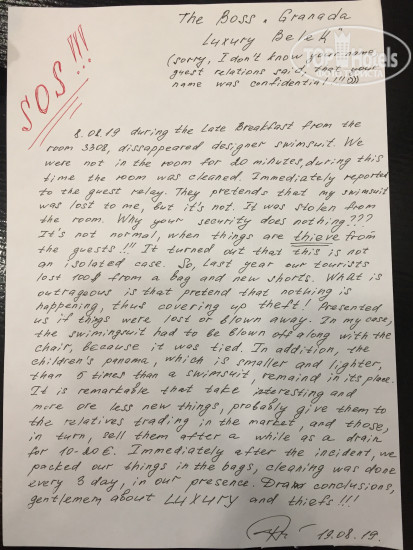 The Boss. Granada
Luxury Belek
(sorry, I don't know your name,
guest relations said that your
name was confidential !!!0))
SOS!!!
8.08.19 during the Late Breakfast from the
room 3308, dissappeared designer swimsuit. We
were not in the room for 20 minutes, during this
time the room was cleaned. Immediately reported
to the guest relay. They pretends that my swimsuit
was lost to me, but it's not. It was stolen from
the room. Why your security does nothing???
It's not normal, when things are thieve from
the guests!!! It turned out that this is not
an isolated case. So, last year our tourists
lost 100$ from a bag and new shorts. What is
outragous is that pretend that nothing is
happening, thus covering up theft! Presented
us if things were lost or blown away. In my case,
the swimingsuit had to be blown off along with the
chair, because it was tied. In addition, the
children's panama, which is smaller and lighter,
than 5 times than a swimsuit, remaind in its place.
It is remarkable that take interesting and
more ore less new things, probably give them to
the relatives trading in the market, and those,
in turn, sell them after a while as a drain
for 10-20€. Immediately after the incident, we
packed our things in the bags, cleaning was done
every 3 day, in our presence. Draw conclusions,
gentlemem about LUXURY and thiefs!!!
19.08.19.